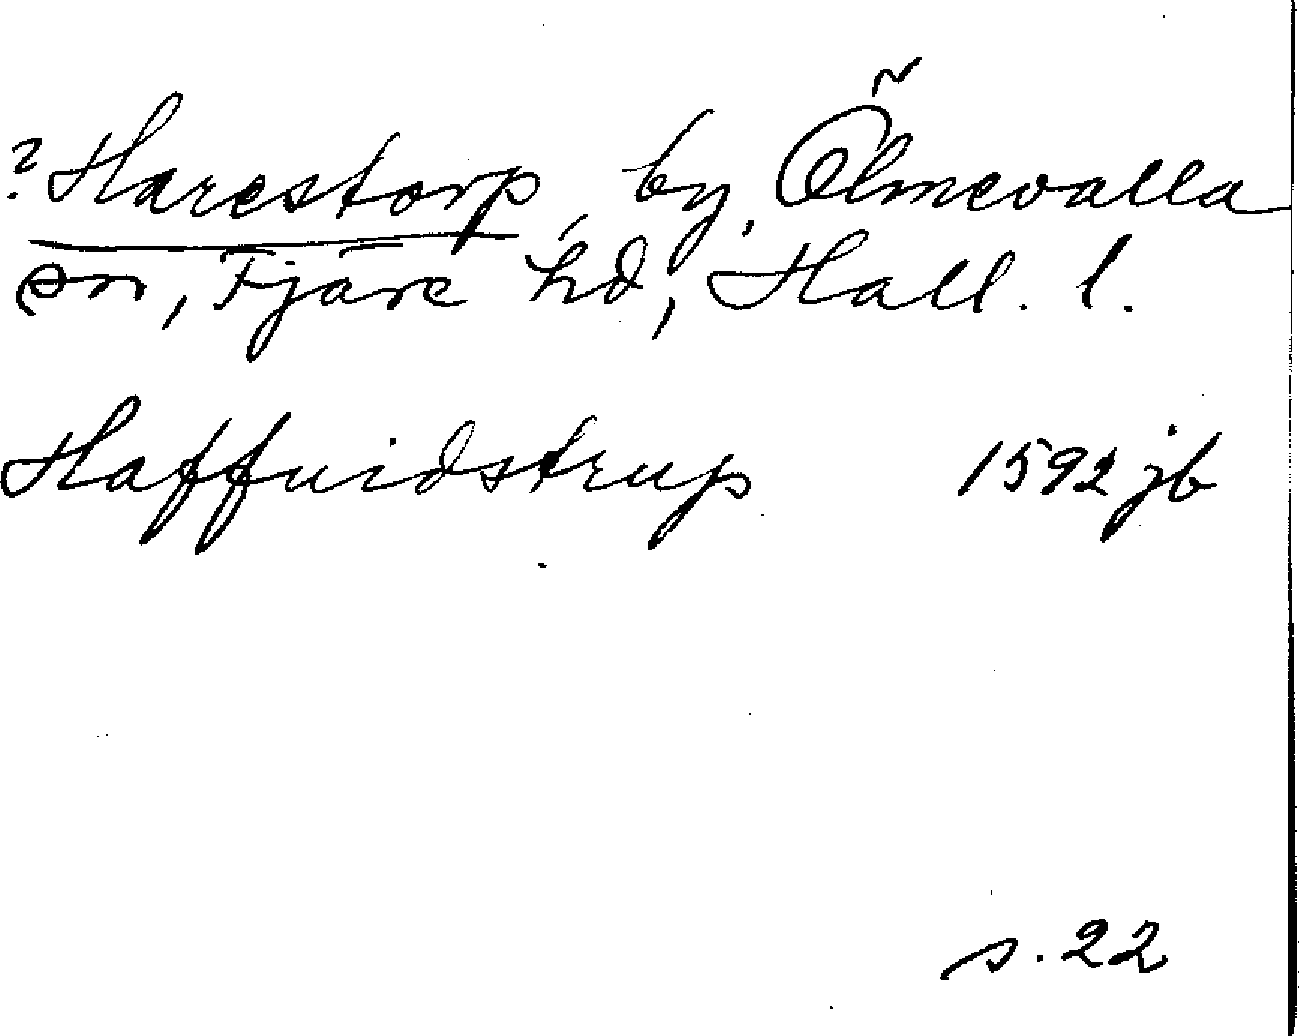 ? Harestorp, by, Ölmevalla
sn, Fjäre hd, Hall. l.
Haffuidstrup 1592 jb
s. 22